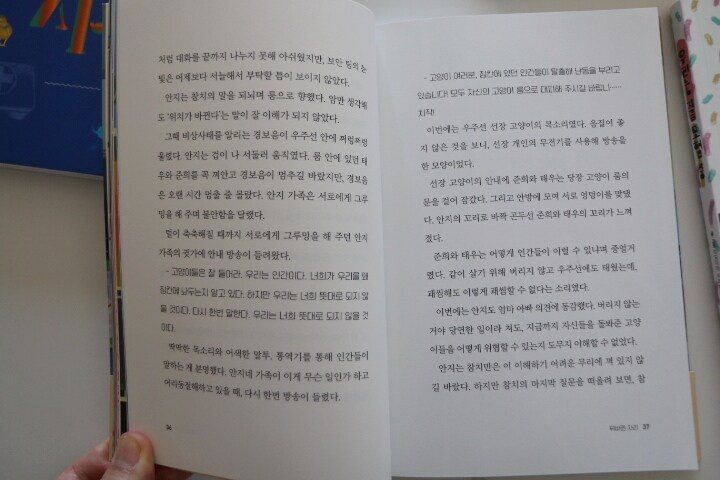 처럼 대화를 끝까지 나누지 못해 아쉬웠지만, 보안 팀의 눈
빛은 어제보다 서늘해서 부탁할 틈이 보이지 않았다.
안지는 참치의 말을 되뇌며 룸으로 향했다. 암만 생각해
도 '위치가 바뀐다'는 말이 잘 이해가 되지 않았다.
그때 비상사태를 알리는 경보음이 우주선 안에 쩌렁쩌렁
울렸다. 안지는 겁이 나 서둘러 움직였다. 룸 안에 있던 태
우와 준희를 꼭 껴안고 경보음이 멈추길 바랐지만, 경보음
은 오랜 시간 멈출 줄 몰랐다. 안지 가족은 서로에게 그루
밍을 해 주며 불안함을 달랬다.
털이 축축해질 때까지 서로에게 그루밍을 해 주던 안지
가족의 귓가에 안내 방송이 들려왔다.
- 고양이들은 잘 들어라. 우리는 인간이다. 너희가 우리를 왜
짐칸에 놔두는지 알고 있다. 하지만 우리는 너희 뜻대로 되지 않
을 것이다. 다시 한번 말한다. 우리는 너희 뜻대로 되지 않을 것
이다.
딱딱한 목소리와 어색한 말투, 통역기를 통해 인간들이
말하는 게 분명했다. 안지네 가족이 이게 무슨 일인가 하고
어리둥절해하고 있을 때, 다시 한번 방송이 들렸다.
36
- 고양이 여러분, 짐칸에 있던 인간들이 탈출해 난동을 부리고
있습니다! 모두 자신의 고양이 룸으로 대피해 주시길 바랍니……
치직!
이번에는 우주선 선장 고양이의 목소리였다. 음질이 좋
지 않은 것을 보니, 선장 개인의 무전기를 사용해 방송을
한 모양이었다.
선장 고양이의 안내에 준희와 태우는 당장 고양이 룸의
문을 걸어 잠갔다. 그리고 안방에 모여 서로 엉덩이를 맞댔
다. 안지의 꼬리로 바짝 곤두선 준희와 태우의 꼬리가 느껴
졌다.
준희와 태우는 어떻게 인간들이 이럴 수 있냐며 중얼거
렸다. 같이 살기 위해 버리지 않고 우주선에도 태웠는데,
괘씸해도 어떻게 괘씸할 수 없다는 소리였다.
이번에는 안지도 엄마 아빠 의견에 동감했다. 버리지 않는
거야 당연한 일이라 쳐도, 지금까지 자신들을 돌봐준 고양
이들을 어떻게 위협할 수 있는지 도무지 이해할 수 없었다.
안지는 참치만은 이 이해하기 어려운 무리에 껴 있지 않
길 바랐다. 하지만 참치의 마지막 질문을 떠올려 보면, 참
뒤바뀐 자리 37